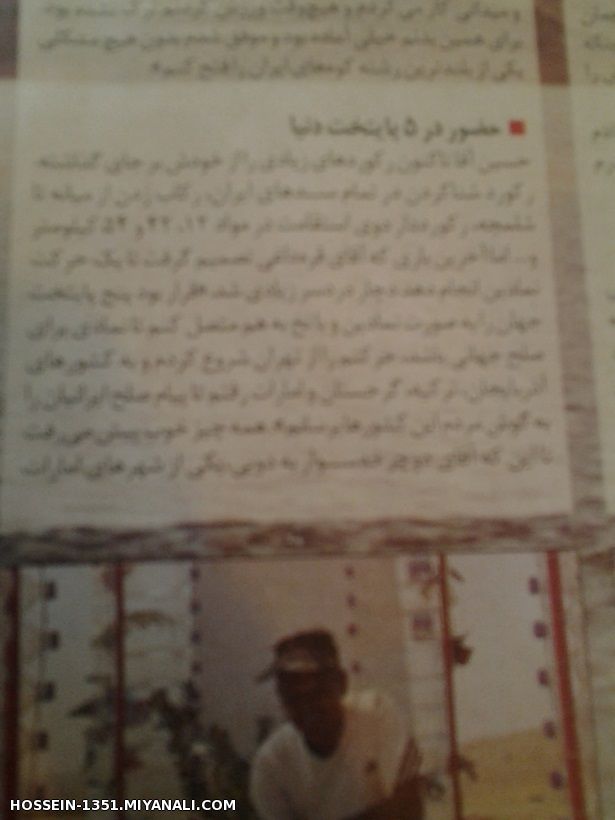 برای همین بدنم خیلی آماده بود و موفق شدم بدون هیچ مشکلی
یکی از بلندترین رشته کوه‌های ایران را فتح کنم».
حضور در ۵ پایتخت دنیا
حسین آقا تاکنون رکوردهای زیادی را از خودش بر جای گذاشته.
رکورد شنا کردن در تمام سدهای ایران، رکاب زدن از میانه تا
شلمچه، رکورددار دوی استقامت در مواد ۱۲، ۴۲ و کیلومتر
و... اما آخرین باری که آقای تصمیم گرفت تا یک حرکت
نمادین انجام دهد دچار دردسر زیادی شد. «قرار بود پنج پایتخت
جهان را به صورت نمادین و با نخ به هم متصل کنم تا نمادی برای
صلح جهانی باشد. حرکتم را از تهران شروع کردم و به کشورهای
آذربایجان، ترکیه، گرجستان و امارات رفتم تا پیام صلح ایرانیان را
به گوش مردم این کشورها برسانم». همه چیز خوب پیش می‌رفت
تا این که آقای دوچرخه‌سوار به دوبی، یکی از شهرهای امارات
HOSSEIN-1351.MIYANALI.COM